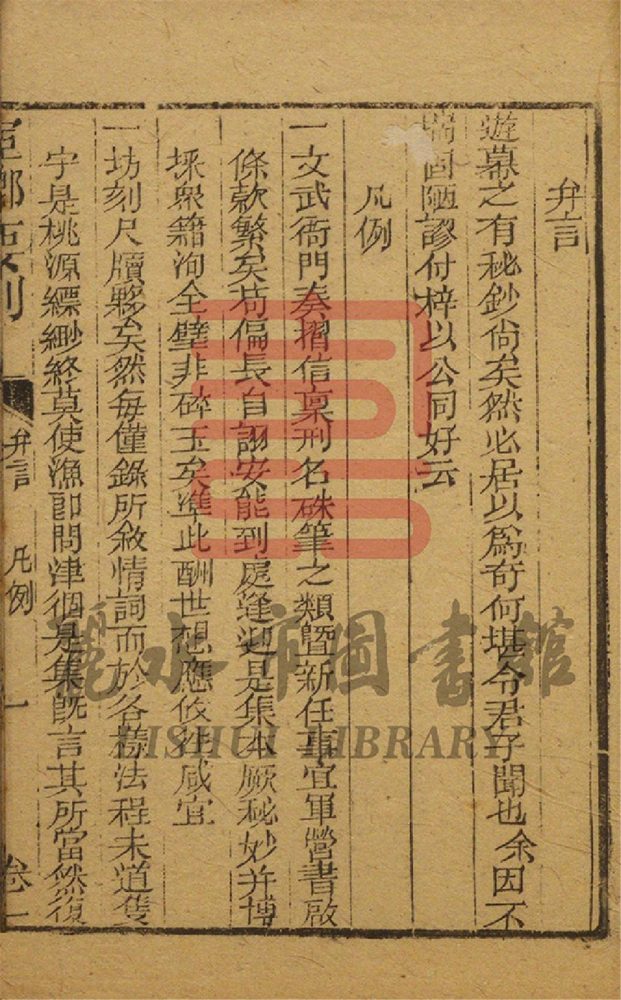 弁言
遊幕之有秘鈔尙矣然必居以爲奇何堪令君子聞也余因不
揣固陋謬付梓以公同好云
凡例
一文武衙門奏摺信稟刑名硃筆之類曁新任事宜軍營書啟
條款繁矣苟偏長自詡安能到處逢迎是集本厥秘妙并博
採羣籍洵全璧非碎玉矣準此酬世想應攸往咸宜
一坊刻尺牘夥矣然每僅錄所敘情詞而於各樣法程未道隻
字是桃源縹緲終莫使漁郎問津徊是集旣言其所當然復
弁言
凡例
一
卷一
麗水市圖書館
LISHUI LIBRARY